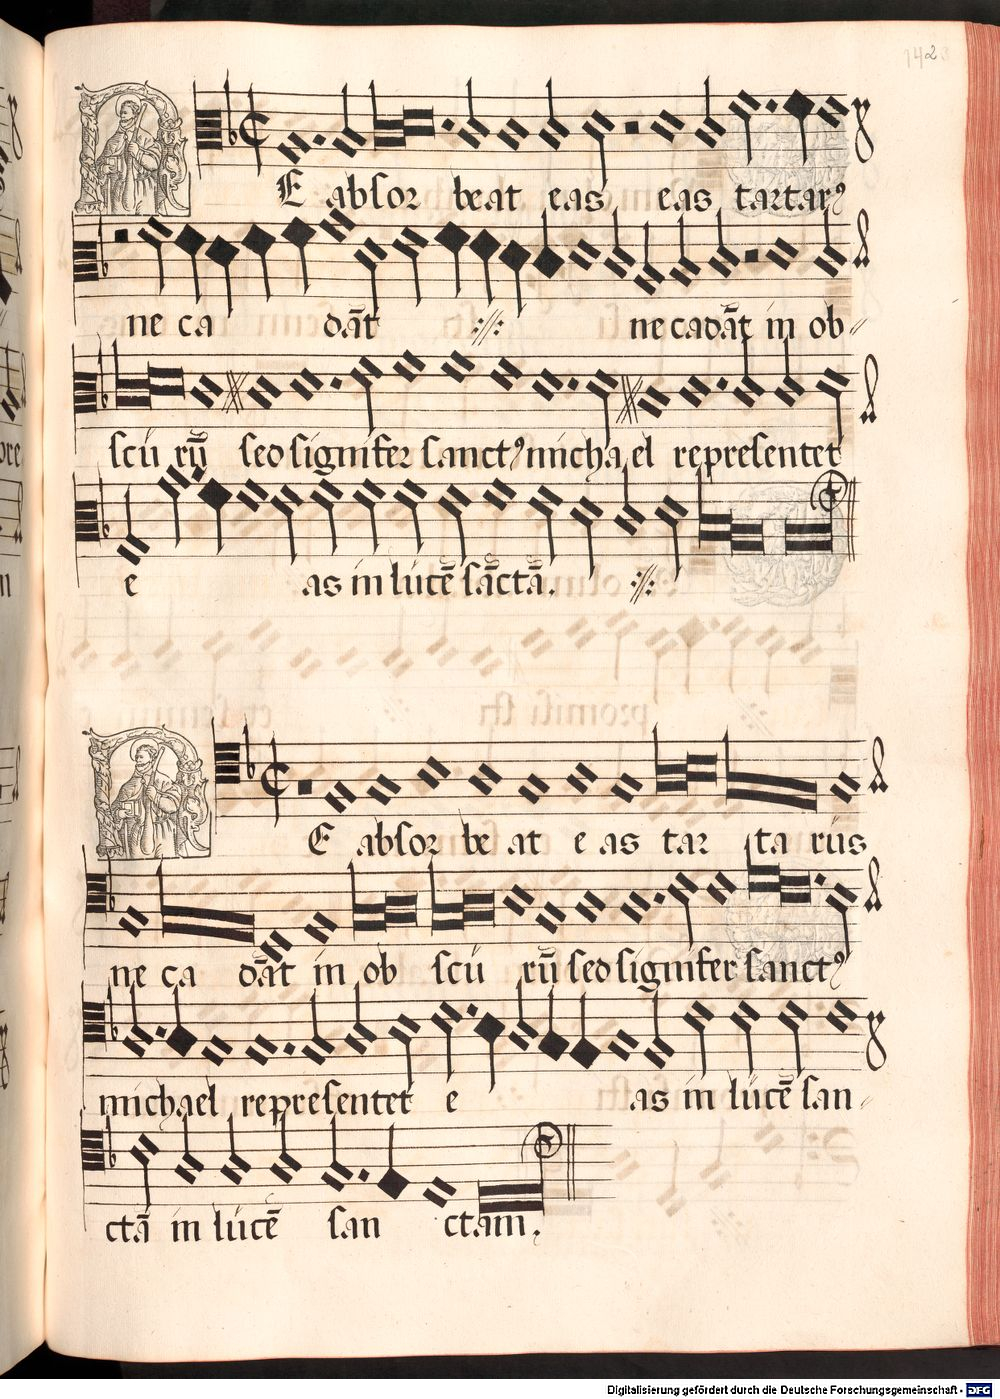 142
E absor beat eas eas tartarꝰ
ne ca dāt ://: ne cadāt in ob⸗
scu rū sed signifer sanctꝰ michael representet
e as in lucē sāctā. ://:
E absor be at e as tar ta rus
ne ca dāt in ob scu rū sed signifer sanctꝰ
michael representet e as in lucē san⸗
ctā in lucē san ctam.
Digitalisierung gefördert durch die Deutsche Forschungsgemeinschaft - DFG